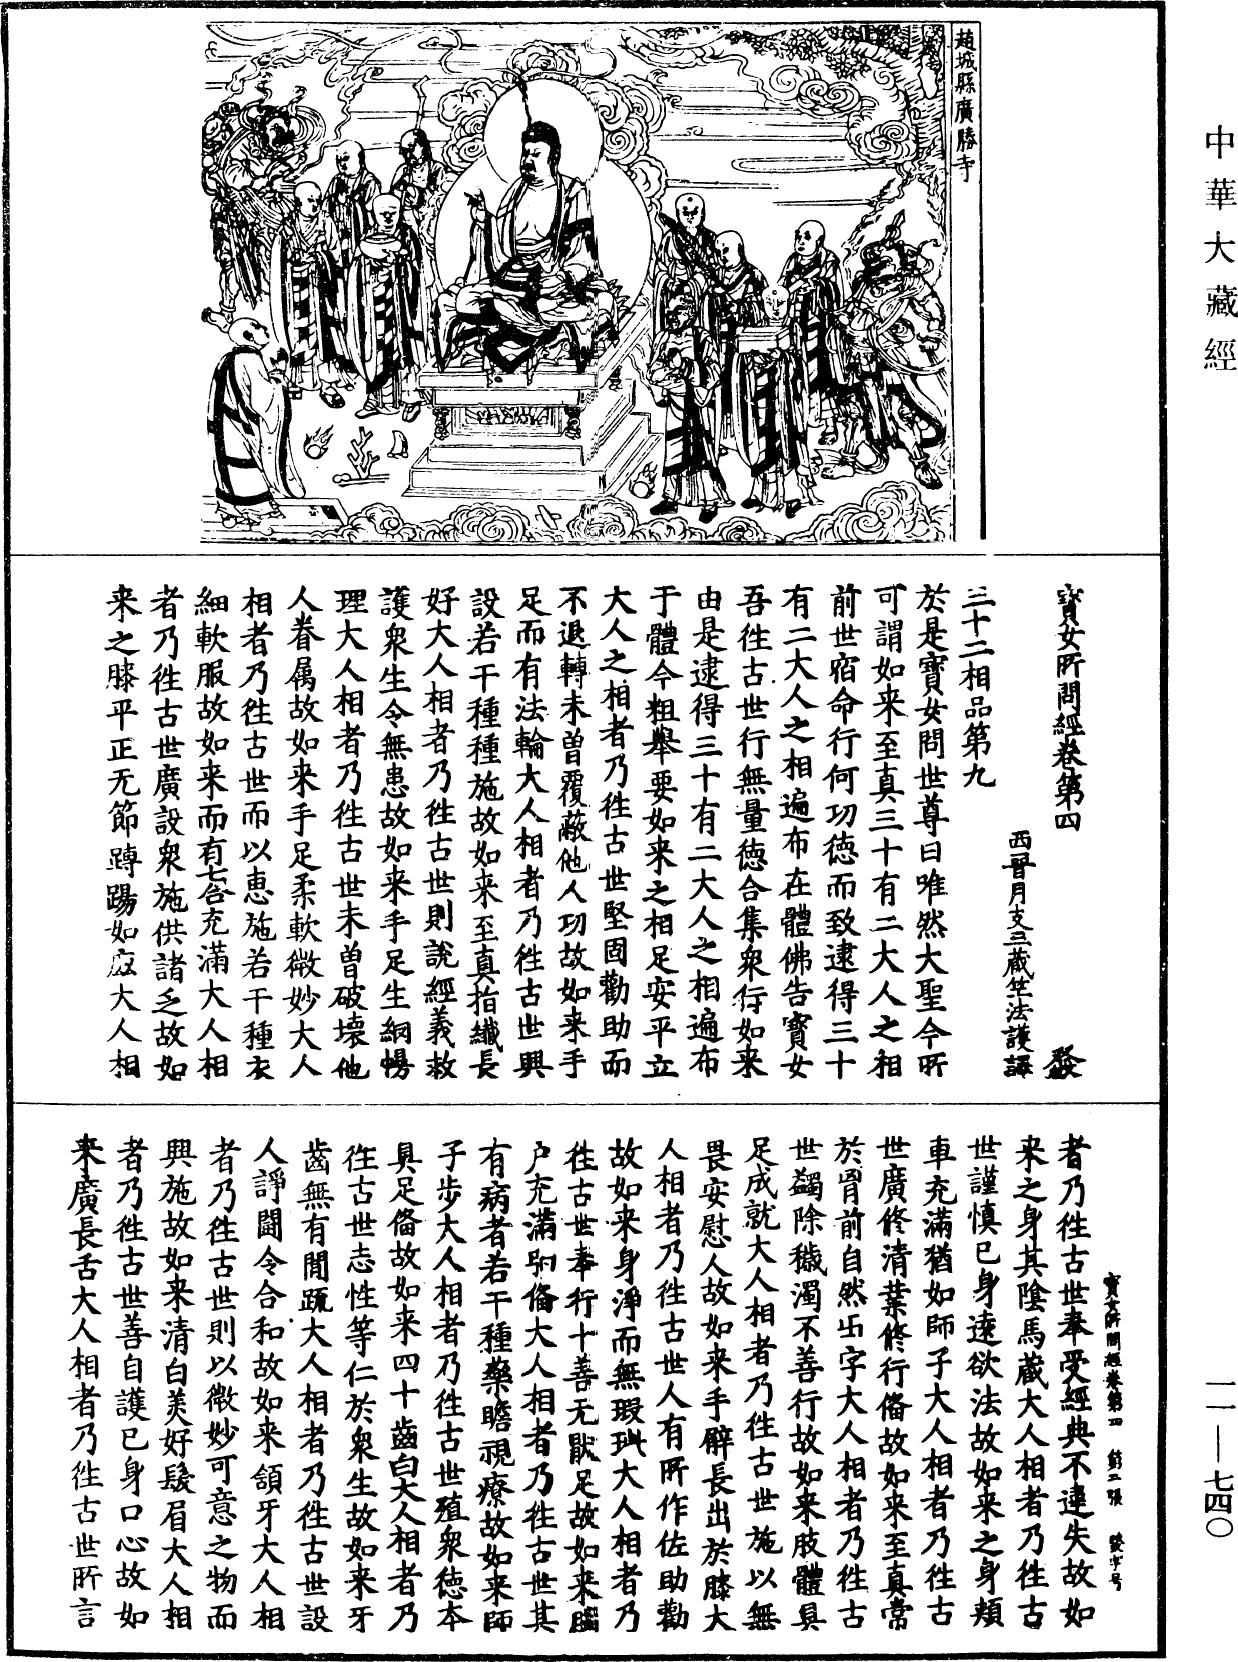 中華大藏經
一一—七四〇
趙城縣廣勝寺
寶女所問經卷第四
發
西晉月支三藏竺法護譯
三十二相品第九
於是寶女問世尊曰唯然大聖今所
可謂如来至真三十有二大人之相
前世宿命行何功德而致逮得三十
有二大人之相遍布在體佛告寶女
吾徃古世行無量德合集衆行如来
由是逮得三十有二大人之相遍布
于體今粗舉要如来之相足安平立
大人之相者乃徃古世堅固勸助而
不退轉未曾覆蔽他人功故如来手
足而有法輪大人相者乃徃古世興
設若干種種施故如来至真指纖長
好大人相者乃徃古世則說經義救
護衆生令無患故如来手足生網幔
理大人相者乃徃古世未曾破壞他
人眷属故如来手足柔軟微妙大人
相者乃徃古世而以惠施若干種衣
細軟服故如来而有七合充滿大人相
者乃徃古世廣設衆施供諸乏故如
来之膝平正无節踹踢如鹿大人相
寶女所問經卷第四　第二張　發字号
者乃徃古世奉受經典不違失故如
来之身其陰馬蔵大人相者乃徃古
世謹慎已身遠欲法故如来之身頰
車充滿猶如師子大人相者乃徃古
世廣修清業修行俻故如来至真常
於胷前自然卐字大人相者乃徃古
世蠲除穢濁不善行故如来肢體具
足成就大人相者乃徃古世施以無
畏安慰人故如来手臂長出於膝大
人相者乃徃古世人有所作佐助勸
故如来身淨而無瑕玼大人相者乃
徃古世奉行十善无猒足故如来腦
户充滿俻大人相者乃徃古世其
有病者若干種藥瞻視療故如来師
子步大人相者乃徃古世殖衆德本
具足俻故如来四十齒白大人相者乃
徃古世志性等仁於衆生故如来牙
齒無有閒䟽大人相者乃徃古世設
人諍鬪令合和故如来頷牙大人相
者乃徃古世則以微妙可意之物而
興施故如来清白美好髮眉大人相
者乃徃古世善自護已身口心故如
来廣長舌大人相者乃徃古世所言